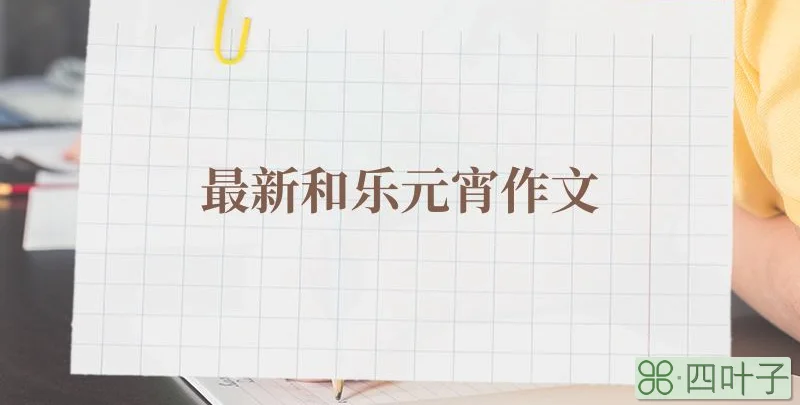 最新和乐元宵作文
四叶子